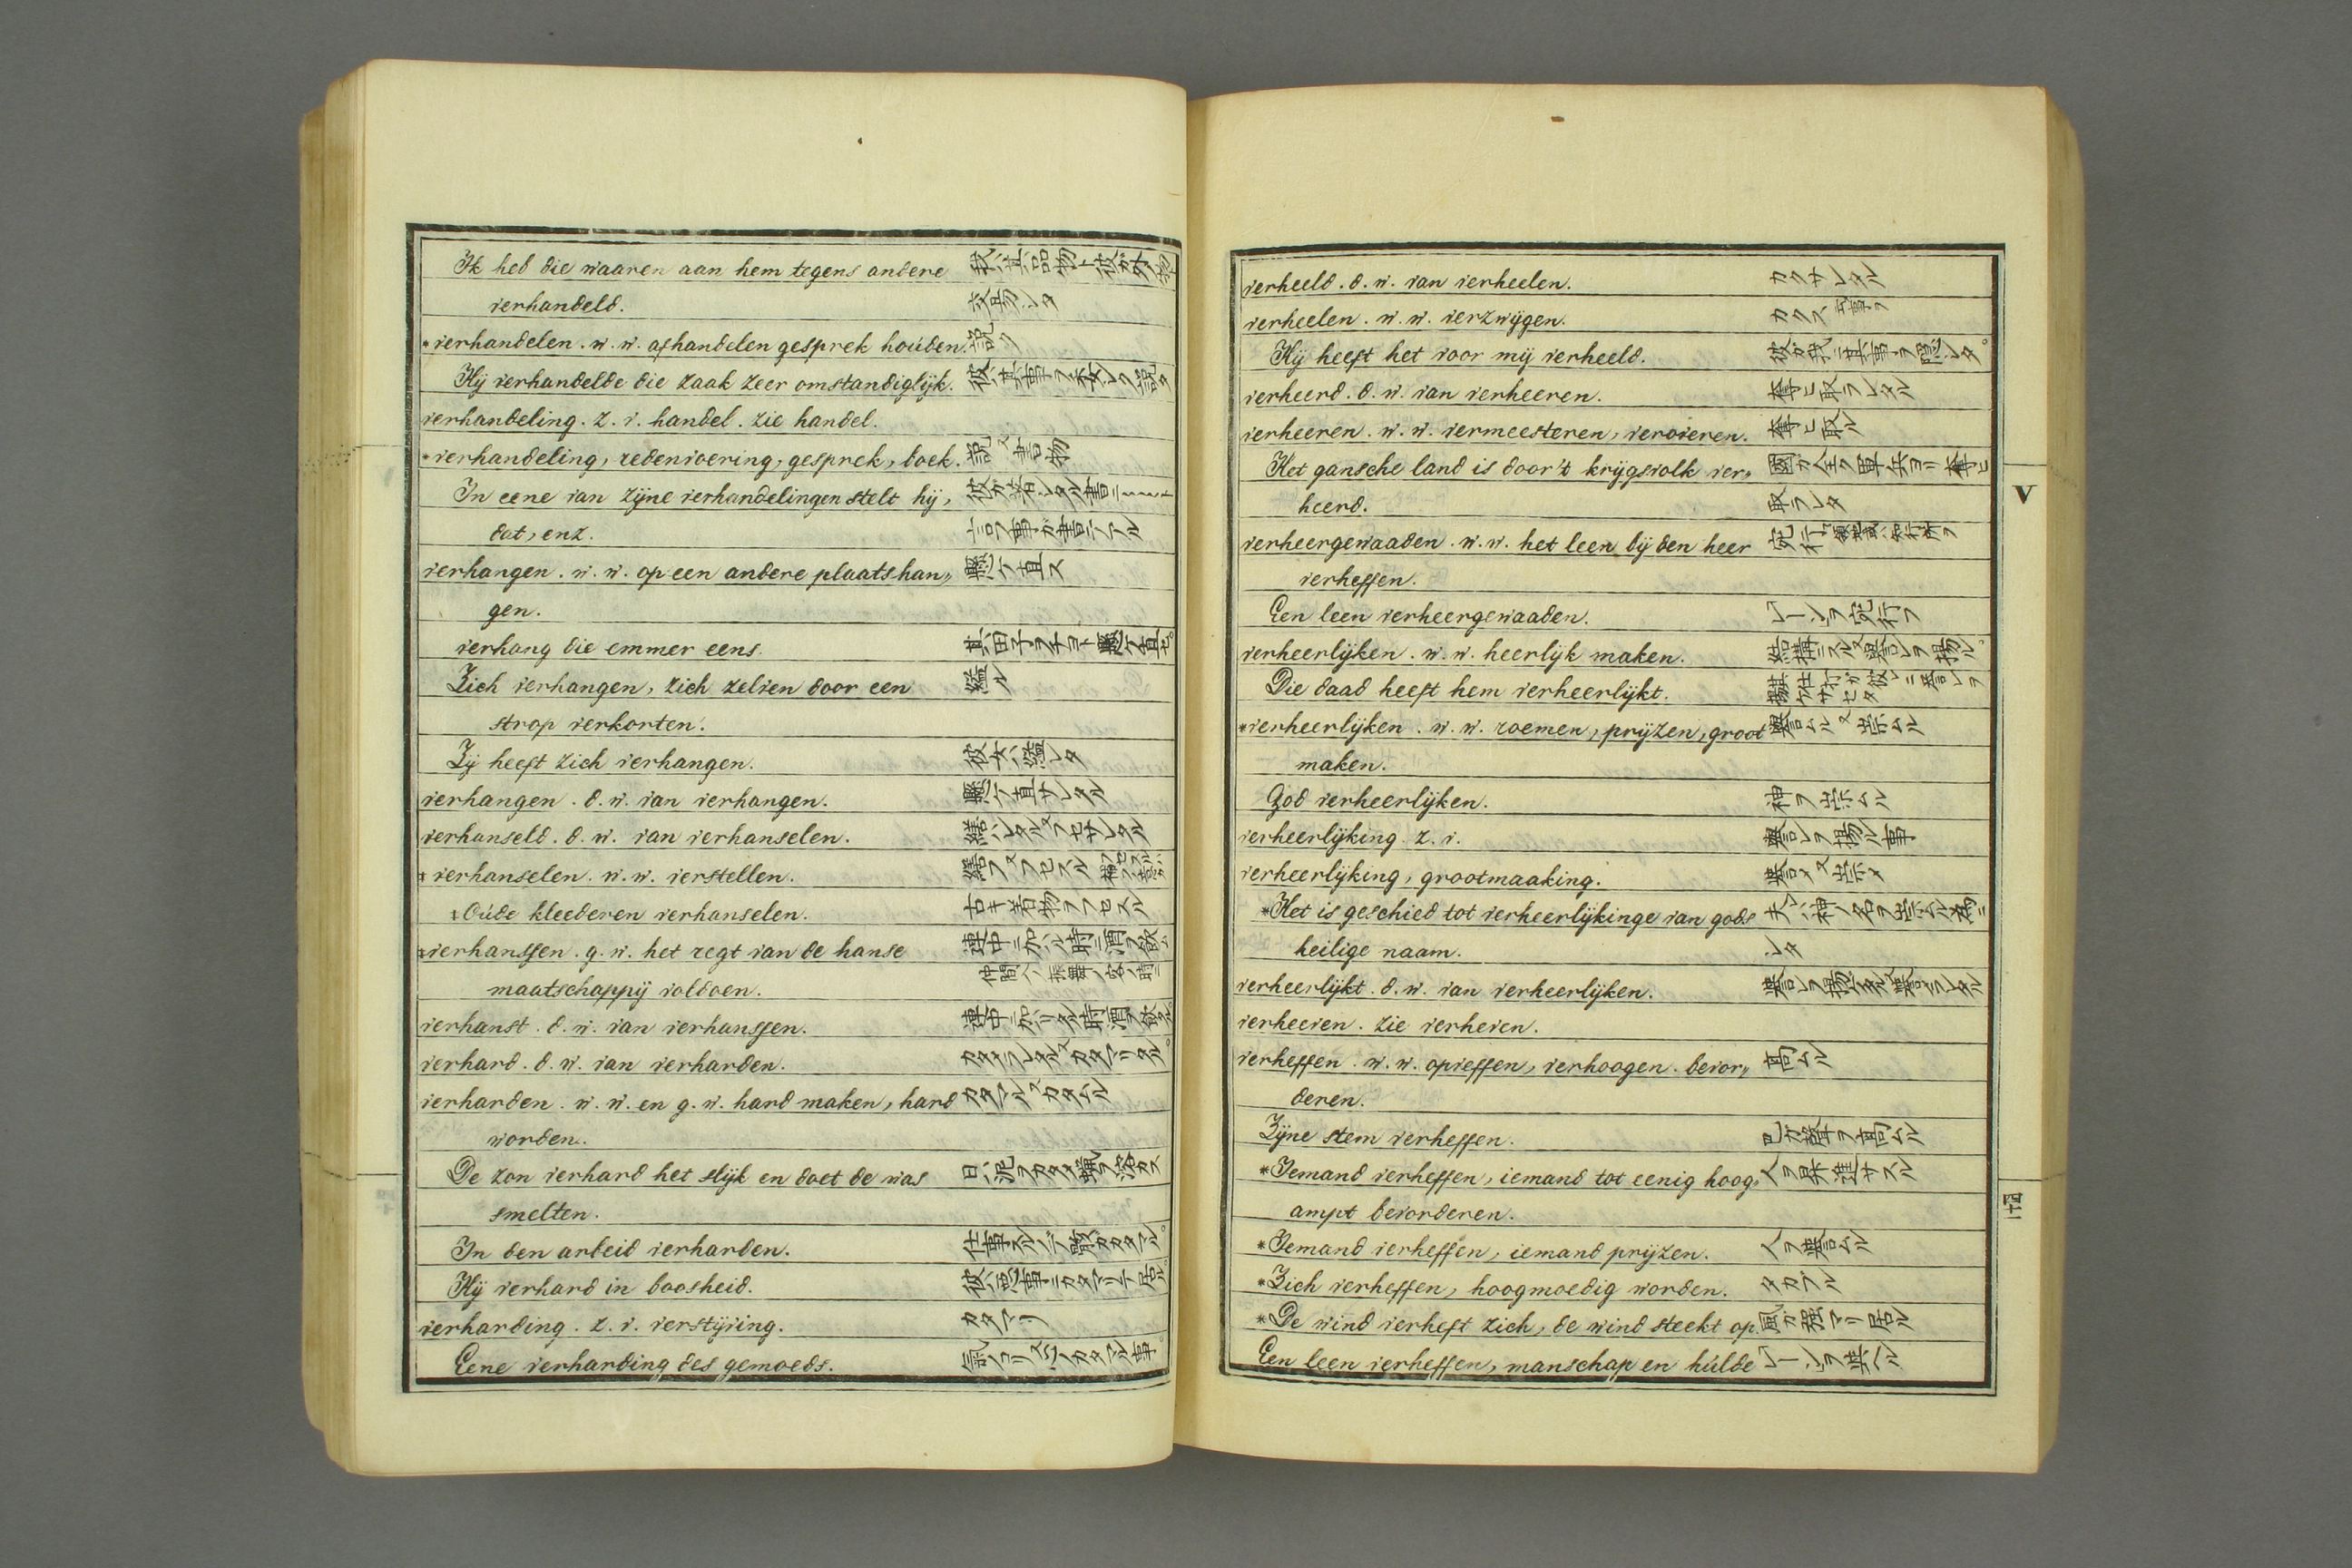 Ik heb die waaren aan hem tegens andere 我ハ其品物ト彼ガ外ノ物
verhandeld. 交易シタ
*verhandelen. w. w. afhandelen gesprek houden. 説ク
Hij verhandelde die zaak zeer omstandiglijk. 彼ハ其事ヲ委シク説タ
verhandeling. z. v. handel. zie handel.
*verhandeling, redenvoering, gesprek, boek. 説 又 書物
In eene van zijne verhandelingen stelt hij,
dat, enz. 言フ事ガ書テアル
verhangen. w. w. op een andere plaats han„ 懸ケ直ス
gen.
verhang die emmer eens.
Zich verhangen, zich zelven door een 縊ル
strop verkorten.
Zij heeft zich verhangen. 彼女ハ縊レタ
verhangen. d. w. van verhangen. 懸ケ直サレタル
verhanseld. d. w. van verhanselen. 繕ハレタル 又 フセサレタル
‡verhanselen. w. w. verstellen. 繕フ 又 フセスル
‡Oude kleederen verhanselen. 古キ着物ヲフセスル
‡verhanssen. g. w. het regt van de hanse 連中ニ加ハル時ニ酒ヲ飲ム
maatschappij voldoen.
verhanst. d. w. van verhanssen. 連中ニ加ハリタル時酒ヲ飲タル
verhard. d. w. van verharden. カタメラレタル 又 カタマリタル
verharden. w. w. en g. w. hard maken, hard カタマル 又 カタムル
worden.
De zon verhard het slijk en doet de was 日ハ泥ヲカタメ蠟ヲ溶カス
smelten.
In den arbeid verharden.
Hij verhard in boosheid. 彼ハ悪事ニカタマリテ居ル
verharding. z. v. verstijving. カタマリ
Eene verharding des gemoeds.
verheeld. d. w. van verheelen. カクサレタル
verheelen. w. w. verzwijgen. カクス 事ヲ
Hij heeft het voor mij verheeld. 彼ガ我ニ其事ヲ隠シタ
verheerd. d. w. van verheeren. 奪ヒ取ラレタル
verheeren. w. w. vermeesteren, veroveren. 奪ヒ取ル
Het gansche land is door't krijgsvolk ver„ 國ガ全ク軍兵ヨリ奪ヒ
heerd. 取ラレタ
verheergewaaden. w. w. het leen bij den heer 宛行フ
verheffen.
Een leen verheergewaaden. レーンヲ宛行フ
verheerlijken. w. w. heerlijk maken. 結構ニスル 又 譽レヲ揚ル
Die daad heeft hem verheerlijkt.
*verheerlijken. w. w. roemen, prijzen, groot 譽ムル 又 崇ムル
maken.
God verheerlijken. 神ヲ崇ムル
verheerlijking. z. v. 譽レヲ揚ル事
verheerlijking, grootmaaking. 譽メ 又 崇メ
*Het is geschied tot verheerlijkinge van gods 夫ハ神ノ名ヲ崇ムル為ニ
heilige naam. シタ
verheerlijkt. d. w. van verheerlijken.
verheeven. zie verheven.
verheffen. w. w. opheffen, verhoogen. bevor„ 高ムル
deren.
Zijne stem verheffen. 己ガ聲ヲ高ムル
*Iemand verheffen, iemand tot eenig hoog„ 人ヲ昇進サスル
ampt bevorderen.
*Iemand verheffen, iemand prijzen. 人ヲ譽ムル
*Zich verheffen, hoogmoedig worden. タカブル
*De wind verheft zich, de wind steekt op. 風ガ強マリ居ル
Een leen verheffen, manschap en hulde レーンヲ與ヘル
V